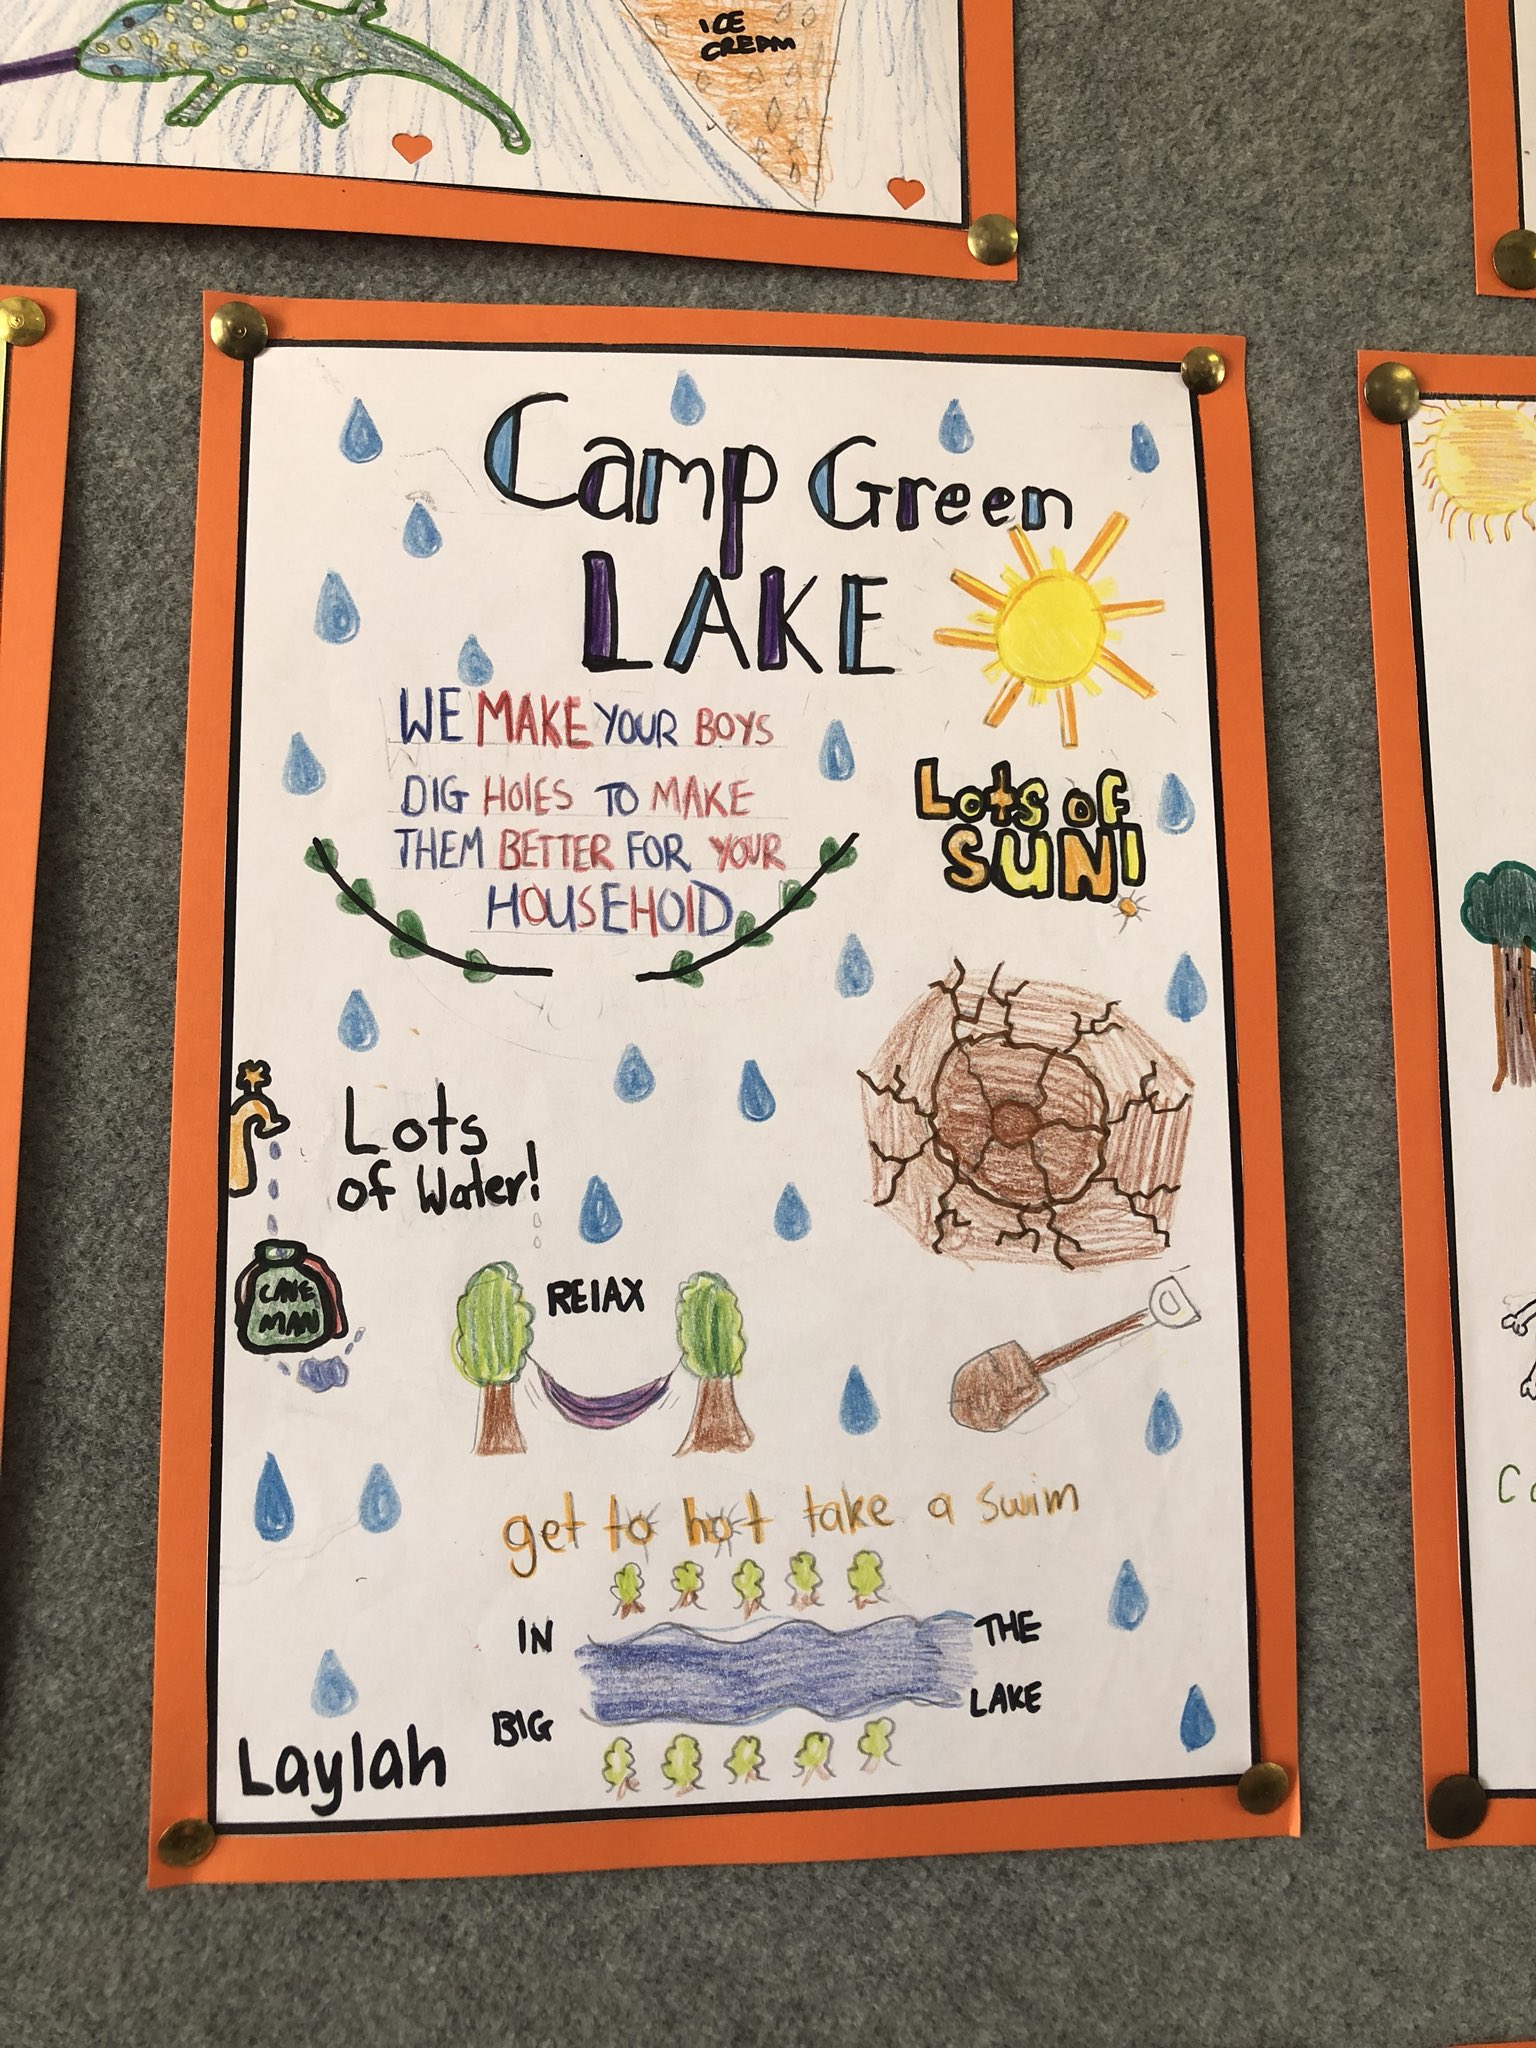 ICE
CREAM
Camp Green
LAKE
WE MAKE YOUR BOYS
DIG HOlES TO MAKE
THEM BETTER FOR YOUR
HOUSEHOlD
Lots of
SUN!
Lots
of Water!
CAVE
MAN
RElAX
get to hot take a swim
IN THE
BIG LAKE
Laylah